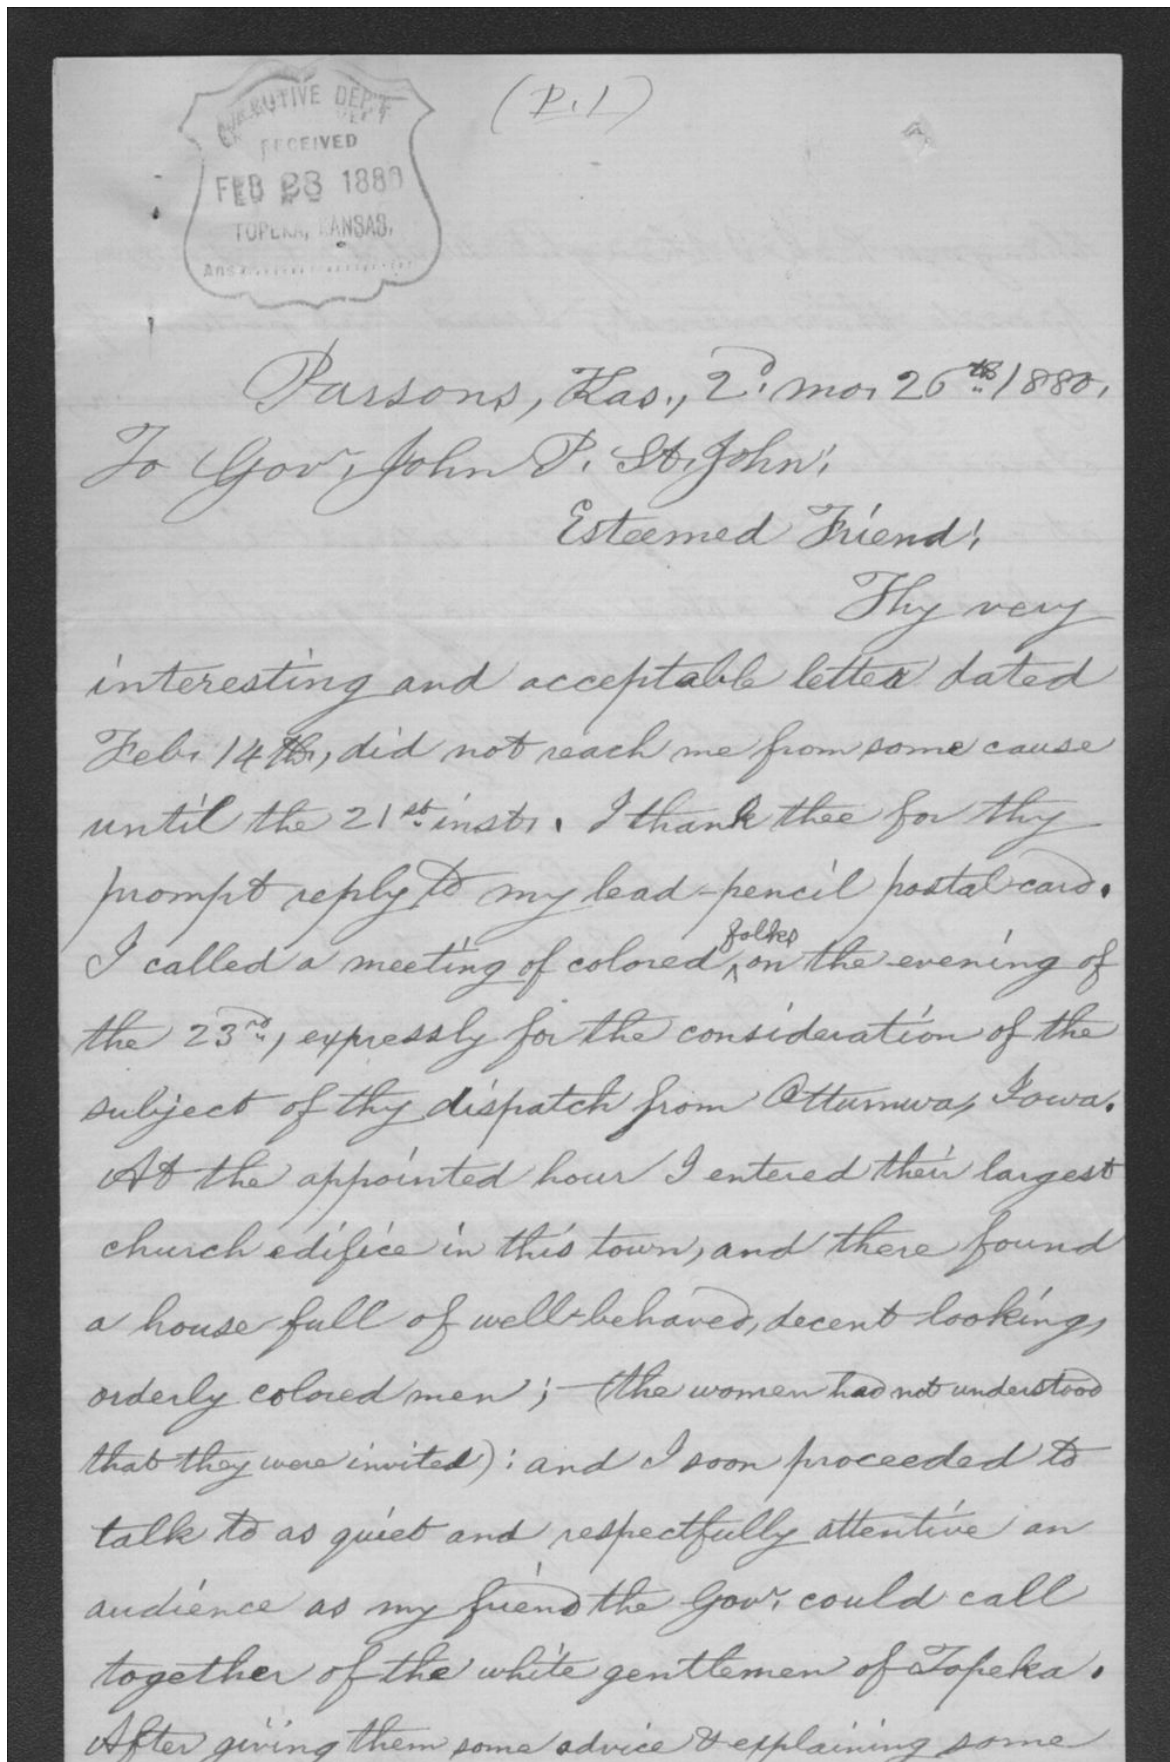 (P. 1)
EXECUTIVE DEP'T
RECEIVED
FEB 28 1880
TOPEKA, KANSAS.
Ans
Parsons, Kas., 2d. mo. 26th. 1880.
To Gov. John P. St. John;
Esteemed Friend;
Thy very
interesting and acceptable letter dated
Feb. 14th, did not reach me from some cause
until the 21st. inst. I thank thee for thy
prompt reply to my lead-pencil postal-card.
I called a meeting of colored folks on the evening of
the 23rd., expressly for the consideration of the
subject of thy dispatch from Ottumwa, Iowa.
At the appointed hour I entered their largest
church edifice in this town, and there found
a house full of well-behaved, decent looking,
orderly colored men; — (the women had not understood
that they were invited): and I soon proceeded to
talk to as quiet and respectfully attentive an
audience as my friend the Gov. could call
together of the white gentlemen of Topeka.
After giving them some advice & explaining some